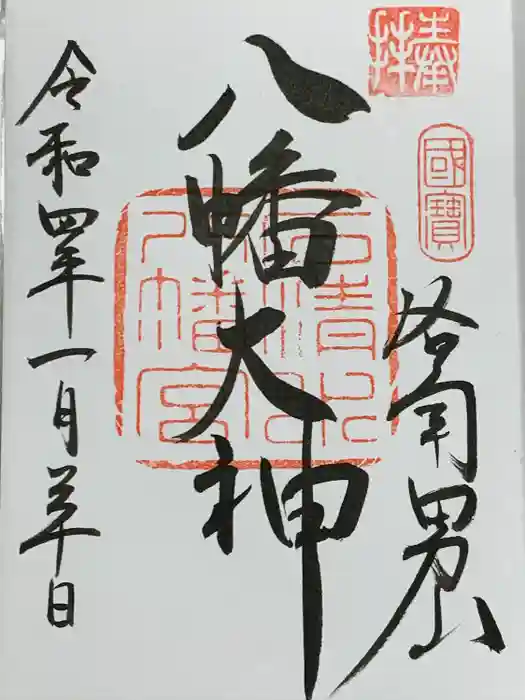 奉拝
國寶
洛南男山
八幡大神
石清水
八幡宮
令和四年一月 日